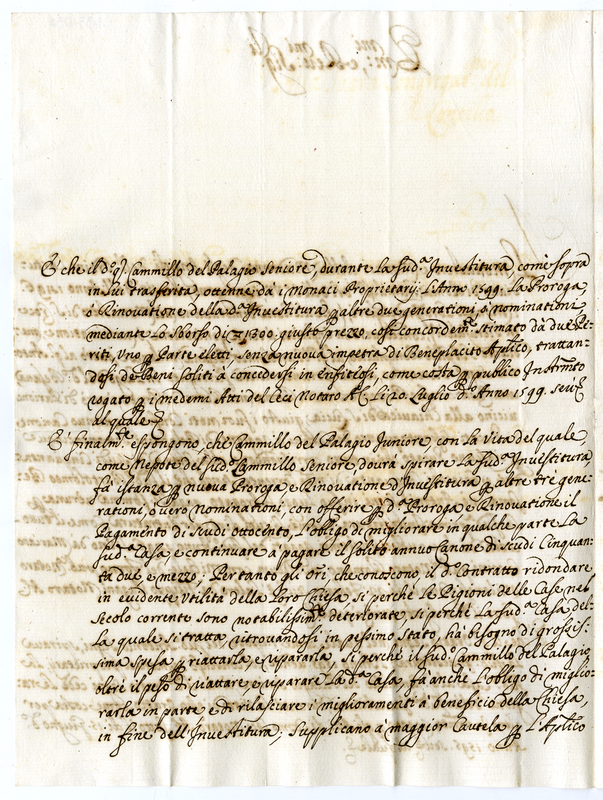 E' che il d.º q. Cammillo del Palagio Seniore, durante la sud.ª Investitura, come sopra
in lui trasferita, ottenne da i Monaci Proprietarij l'Anno 1599. la Proroga,
ò Rinovatione della d.ª Investitura p altre due generationi, ò nominationi
mediante lo sborso di 1300. giusto prezzo, così concordem.te stimato dà due Pe-
riti, Uno p Parte eletti senza nuova impetra di Beneplacito Apl.ico, trattan-
dosi de Beni soliti à concedersi in enfiteosi, come costa p publico Instrum.to
rogato p i medemi Atti del Ceci Notaro A.C. li 20. Luglio d.º Anno 1599.
al quale
E' finalm.te espongono, che Cammillo del Palagio Juniore, con la vita del quale,
come Nepote del sud.º Cammillo Seniore dourà spirare la sud.ª Investitura,
fà istanza p nuova Proroga, e Rinovatione d'Investitura p altre trè gene-
rationi, ò vero nominationi, con offerire p d.ª Proroga e Rinovatione il
Pagamento di scudi ottocento, l'obligo di migliorare in qualche parte la
sud.ª Casa, e continuare a pagare il solito annuo Canone di scudi Cinquan-
ta due, e mezzo; Per tanto gli Ori, che conoscono, il d.º Contratto ridondare
in evidente Utilità della loro Chiesa, si perche le Pigioni delle Case nel
secolo corrente sono notabilissim.te deteriorate, si perche la sud.ª Casa del-
la quale si tratta ritrovandosi in pessimo stato, hà bisogno di grossis-
sima spesa p riattarla, e ripararla, si perche il sud.º Cammillo del Palagio
oltre il peso di riattare, e riparare la d.ª Casa, fà anche l'obligo di miglio-
rarla in parte e di rilasciare i miglioramenti à beneficio della Chiesa,
in fine dell'Investitura, Supplicano à maggior Cautela p l'Apl.ico